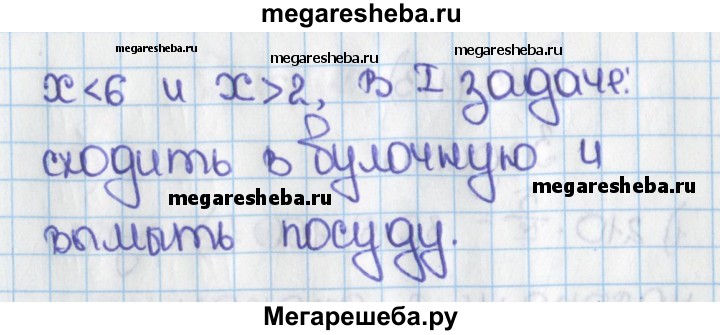 megaresheba.ru
megaresheba.ru megaresheba.ru megaresheba.ru
x<6 и x>2, в I задаче:
сходить в булочную и
megaresheba.ru megaresheba.ru
вымыть посуду.
Мегарешеба.ру